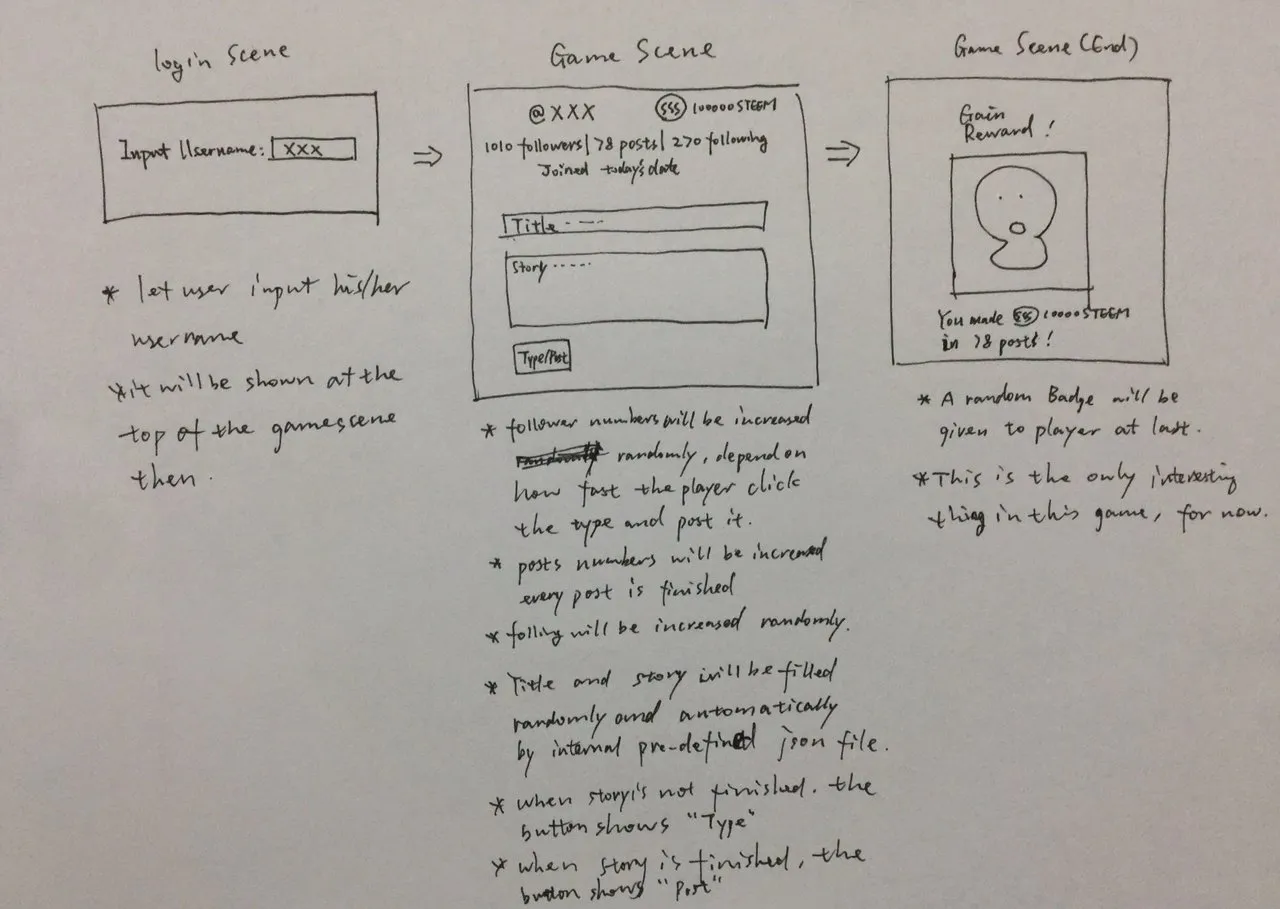 login Scene
Input Username: XXX
* let user input his/her
username
* it will be shown at the
top of the gamescene
then.
Game Scene
@XXX
$$$ 10000STEEM
1010 followers | 78 posts | 270 following
Joined today's date
Title - ----
Story -----
Type/Post
* follower numbers will be increased
randomly randomly, depend on
how fast the player click
the type and post it.
* posts numbers will be increased
every post is finished
* folling will be increased randomly.
* Title and story will be filled
randomly and automatically
by internal pre-defined json file.
* when story is not finished. the
button shows "Type"
* when story is finished, the
button shows "Post"
Game Scene (End)
Gain
Reward!
You made $$ 10000STEEM
in 78 posts!
* A random Badge will be
given to player at last.
* This is the only interesting
thing in this game, for now.